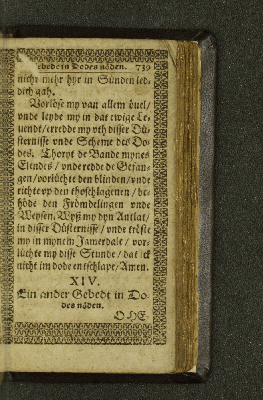 ebede in Dodes nöden. 739
nicht mehr hyr in Sünden led-
dich gah.
Vorlöse my van allem övel/
vnde leyde my in dat ewige Le-
uendt/erredde my vth disser Dü-
sternisse vnde Scheme des Do-
des. Thoryt de Bande mynes
Elendes / vnde redde de Gefan-
gen/vorlüchte den blinden/vnde
richte vp den thoschlagenen / be-
höde den Frömdelingen vnde
Weysen. Wyß my dyn Antlat/
in disser Düsternisse / vnde tröste
my in mynem Jamerdale / vor-
lüchte my disse Stunde / dat ick
nicht im dode entschlape/Amen.
XIV.
Ein ander Gebedt in Do-
des nöden.
O HE-